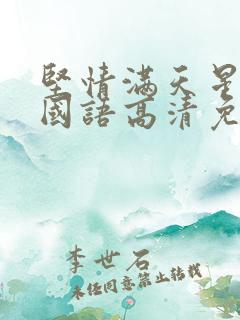 堅情滿天星
國語高清免
李世石
未经同意禁止转载